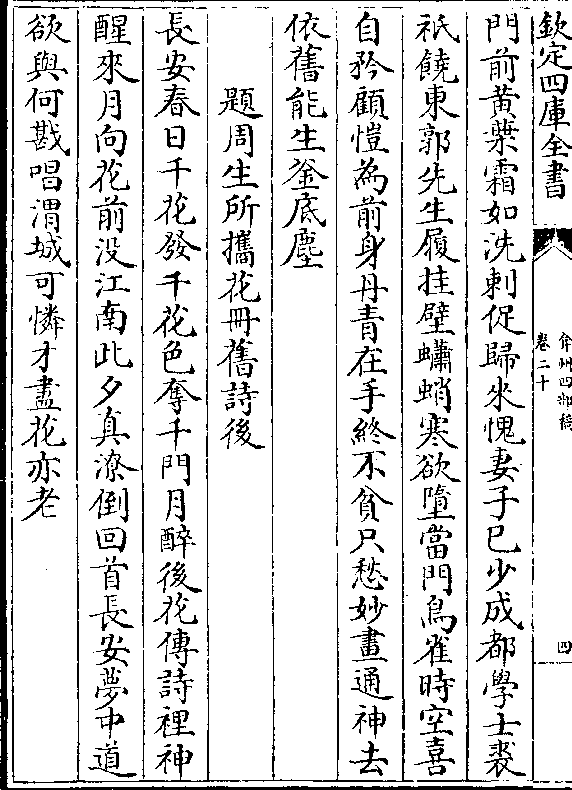 欽定四庫全書
弇州四部稿
卷二十
四
門前黄葉霜如洗刺促歸來愧妻子已少成都學士裘
祇饒東郭先生履挂壁蠨蛸寒欲墮當門鳥雀時空喜
自矜顧愷為前身丹青在手終不貧只愁妙畫通神去
依舊能生釜底塵
題周生所攜花冊舊詩後
長安春日千花發千花色奪千門月醉後花傳詩裡神
醒來月向花前没江南此夕真潦倒回首長安夢中道
欲與何戡唱渭城可憐才盡花亦老